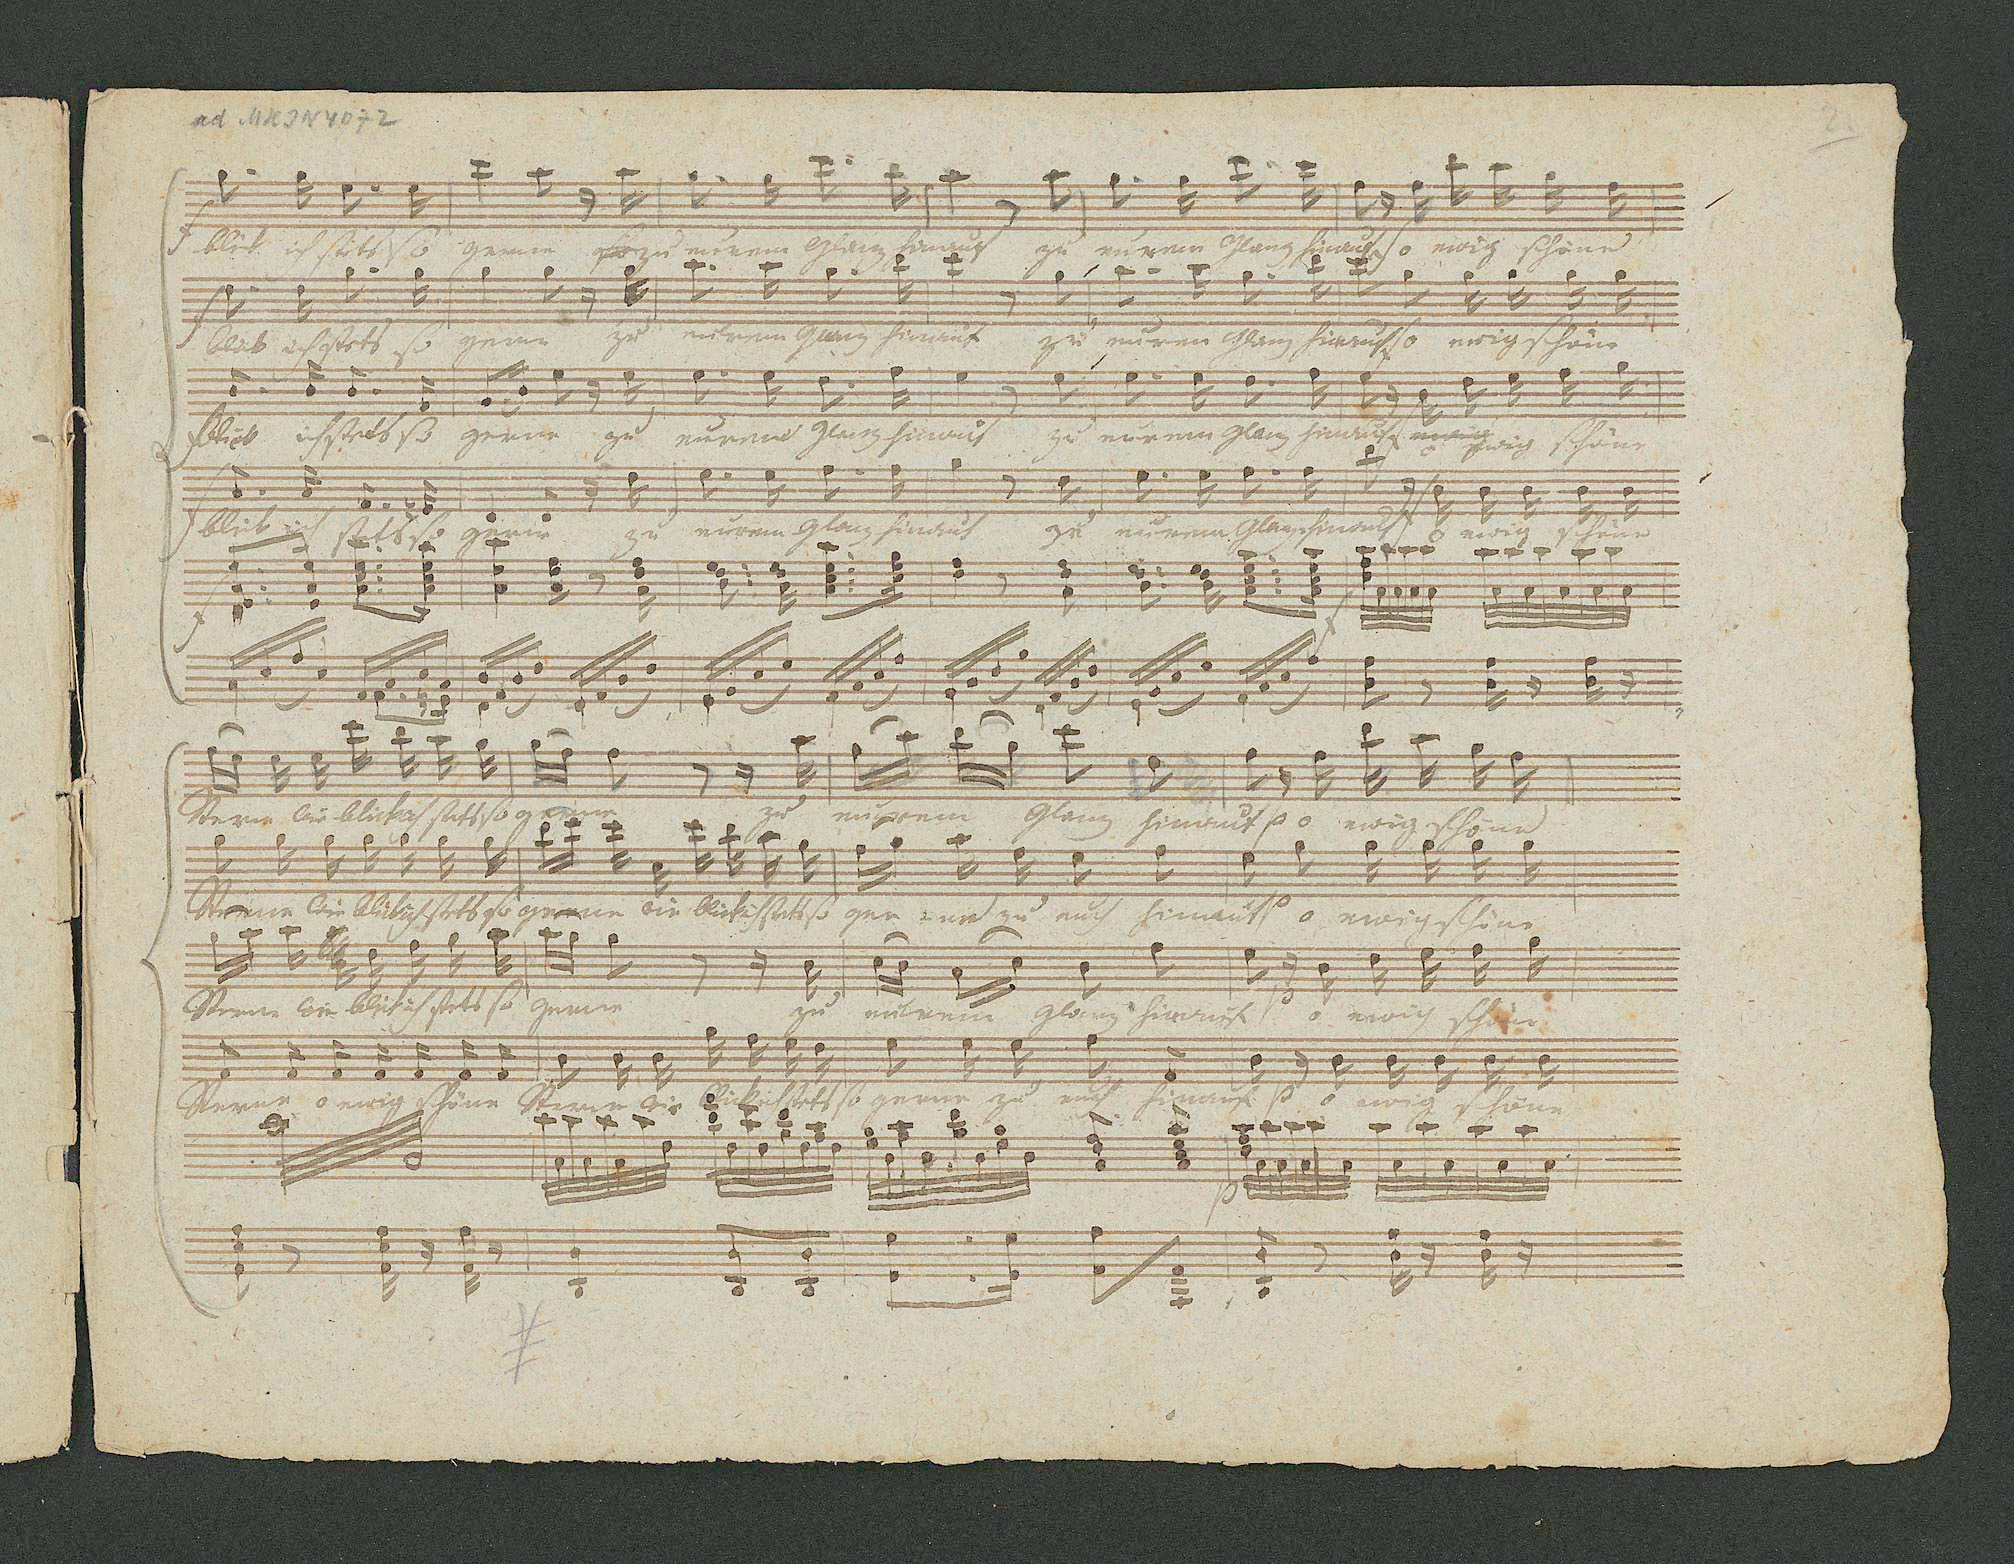 2.
f blick ich stets so gerne zu eurem Glanz hinauf zu eurem Glanz hinauf o ewig schöne
f blick ich stets so gerne zu eurem Glanz hinauf zu eurem Glanz hinauf o ewig schöne
f blick ich stets so gerne zu eurem Glanz hinauf zu eurem Glanz hinauf o ewig schöne
f blick ich stets so gerne zu eurem Glanz hinauf zu eurem Glanz hinauf o ewig schöne
f f
Sterne wie blick ich stets so gerne zu eurem Glanz hinauf p o ewig schöne
Sterne wie blick ich stets so gerne wie blick ich stets so gerne zu euch hinauf p o ewig schöne
Sterne wie blick ich stets so gerne zu eurem Glanz hinauf p o ewig schöne
Sterne o ewig schöne Sterne wie blick ich stets so gerne zu euch hinauf p o ewig schöne
p